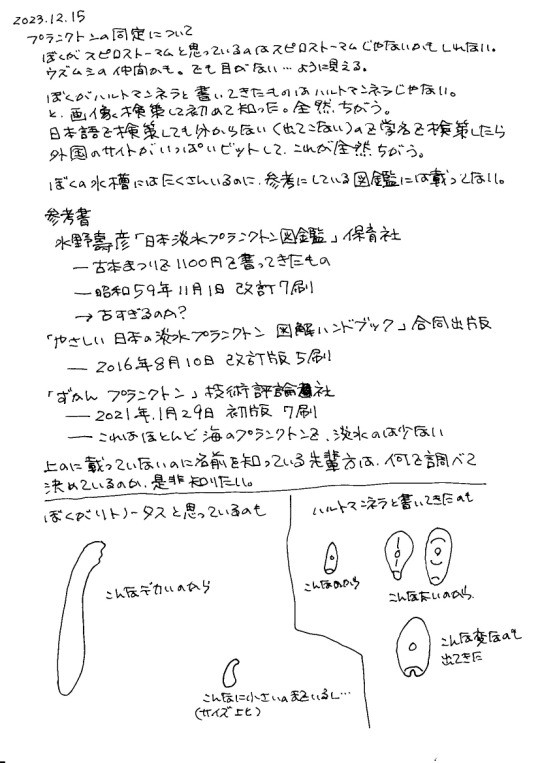 2023.12.15
プランクトンの同定について
ぼくがスピロストーマムと思っているのはスピロストーマムじゃないかもしれない。
ウズムシの仲間かも。でも目がない…ように見える。
ぼくがハルトマンネラと書いてきたものはハルトマンネラじゃない。
と、画像を検索して初めて知った。全然ちがう。
日本語で検索しても分からない(出てこない)ので学名で検索したら
外国のサイトがいっぱいヒットして、これが全然ちがう。
ぼくの水槽にはたくさんいるのに、参考にしている図鑑には載ってない。
参考書
水野壽彦「日本淡水プランクトン図鑑」保育社
― 古本まつりで1100円で買ってきたもの
― 昭和59年11月1日 改訂7刷
→ 古すぎるのか?
「やさしい日本の淡水プランクトン 図解ハンドブック」合同出版
― 2016年8月10日 改訂版5刷
「ずかん プランクトン」技術評論社
― 2021年1月29日 初版 7刷
― これはほとんど海のプランクトンで、淡水のは少ない
上のに載っていないのに名前を知っている先輩方は、何で調べて
決めているのか、是非知りたい。
ぼくがリトノータスと思っているもの
こんなデカいのから
こんなに小さいのまでいるし…
(サイズ比)
ハルトマンネラと書いてきたもの
こんなのから
こんな長いのから
こんな変なのも
出てきた